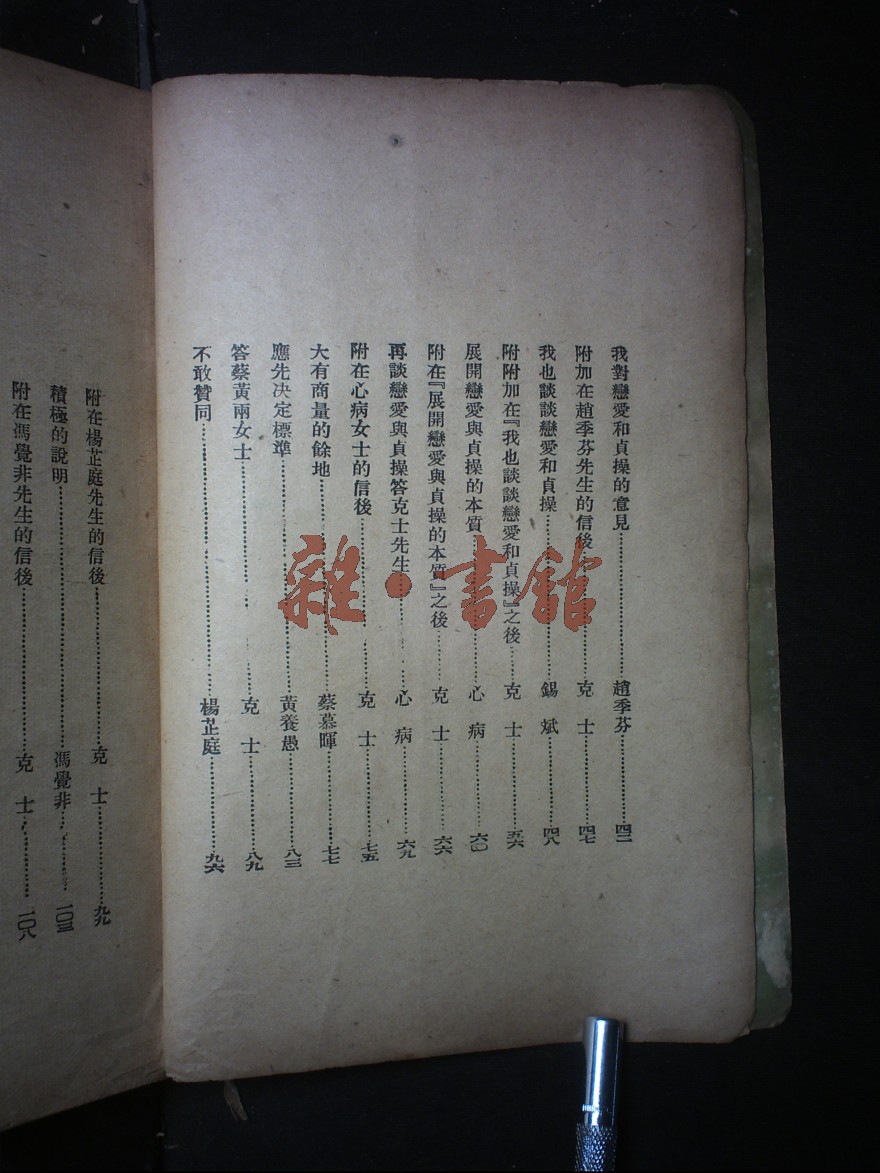 我對戀愛和貞操的意見……趙季芬……四二
附加在趙季芬先生的信後……克士……四七
我也談談戀愛和貞操……錫斌……四八
附附加在『我也談談戀愛和貞操』之後……克士……五六
展開戀愛與貞操的本質……心病……六〇
附在『展開戀愛與貞操的本質』之後……克士……六六
再談戀愛與貞操答克士先生……心病……六九
附在心病女士的信後……克士……七五
大有商量的餘地……蔡慕暉……七七
應先决定標準……黃養愚……八三
答蔡黃兩女士……克士……八九
不敢贊同……楊芷庭……九六
附在楊芷庭先生的信後……克士……九九
積極的說明……馮覺非……一〇三
附在馮覺非先生的信後……克士……一〇八
雜·書館